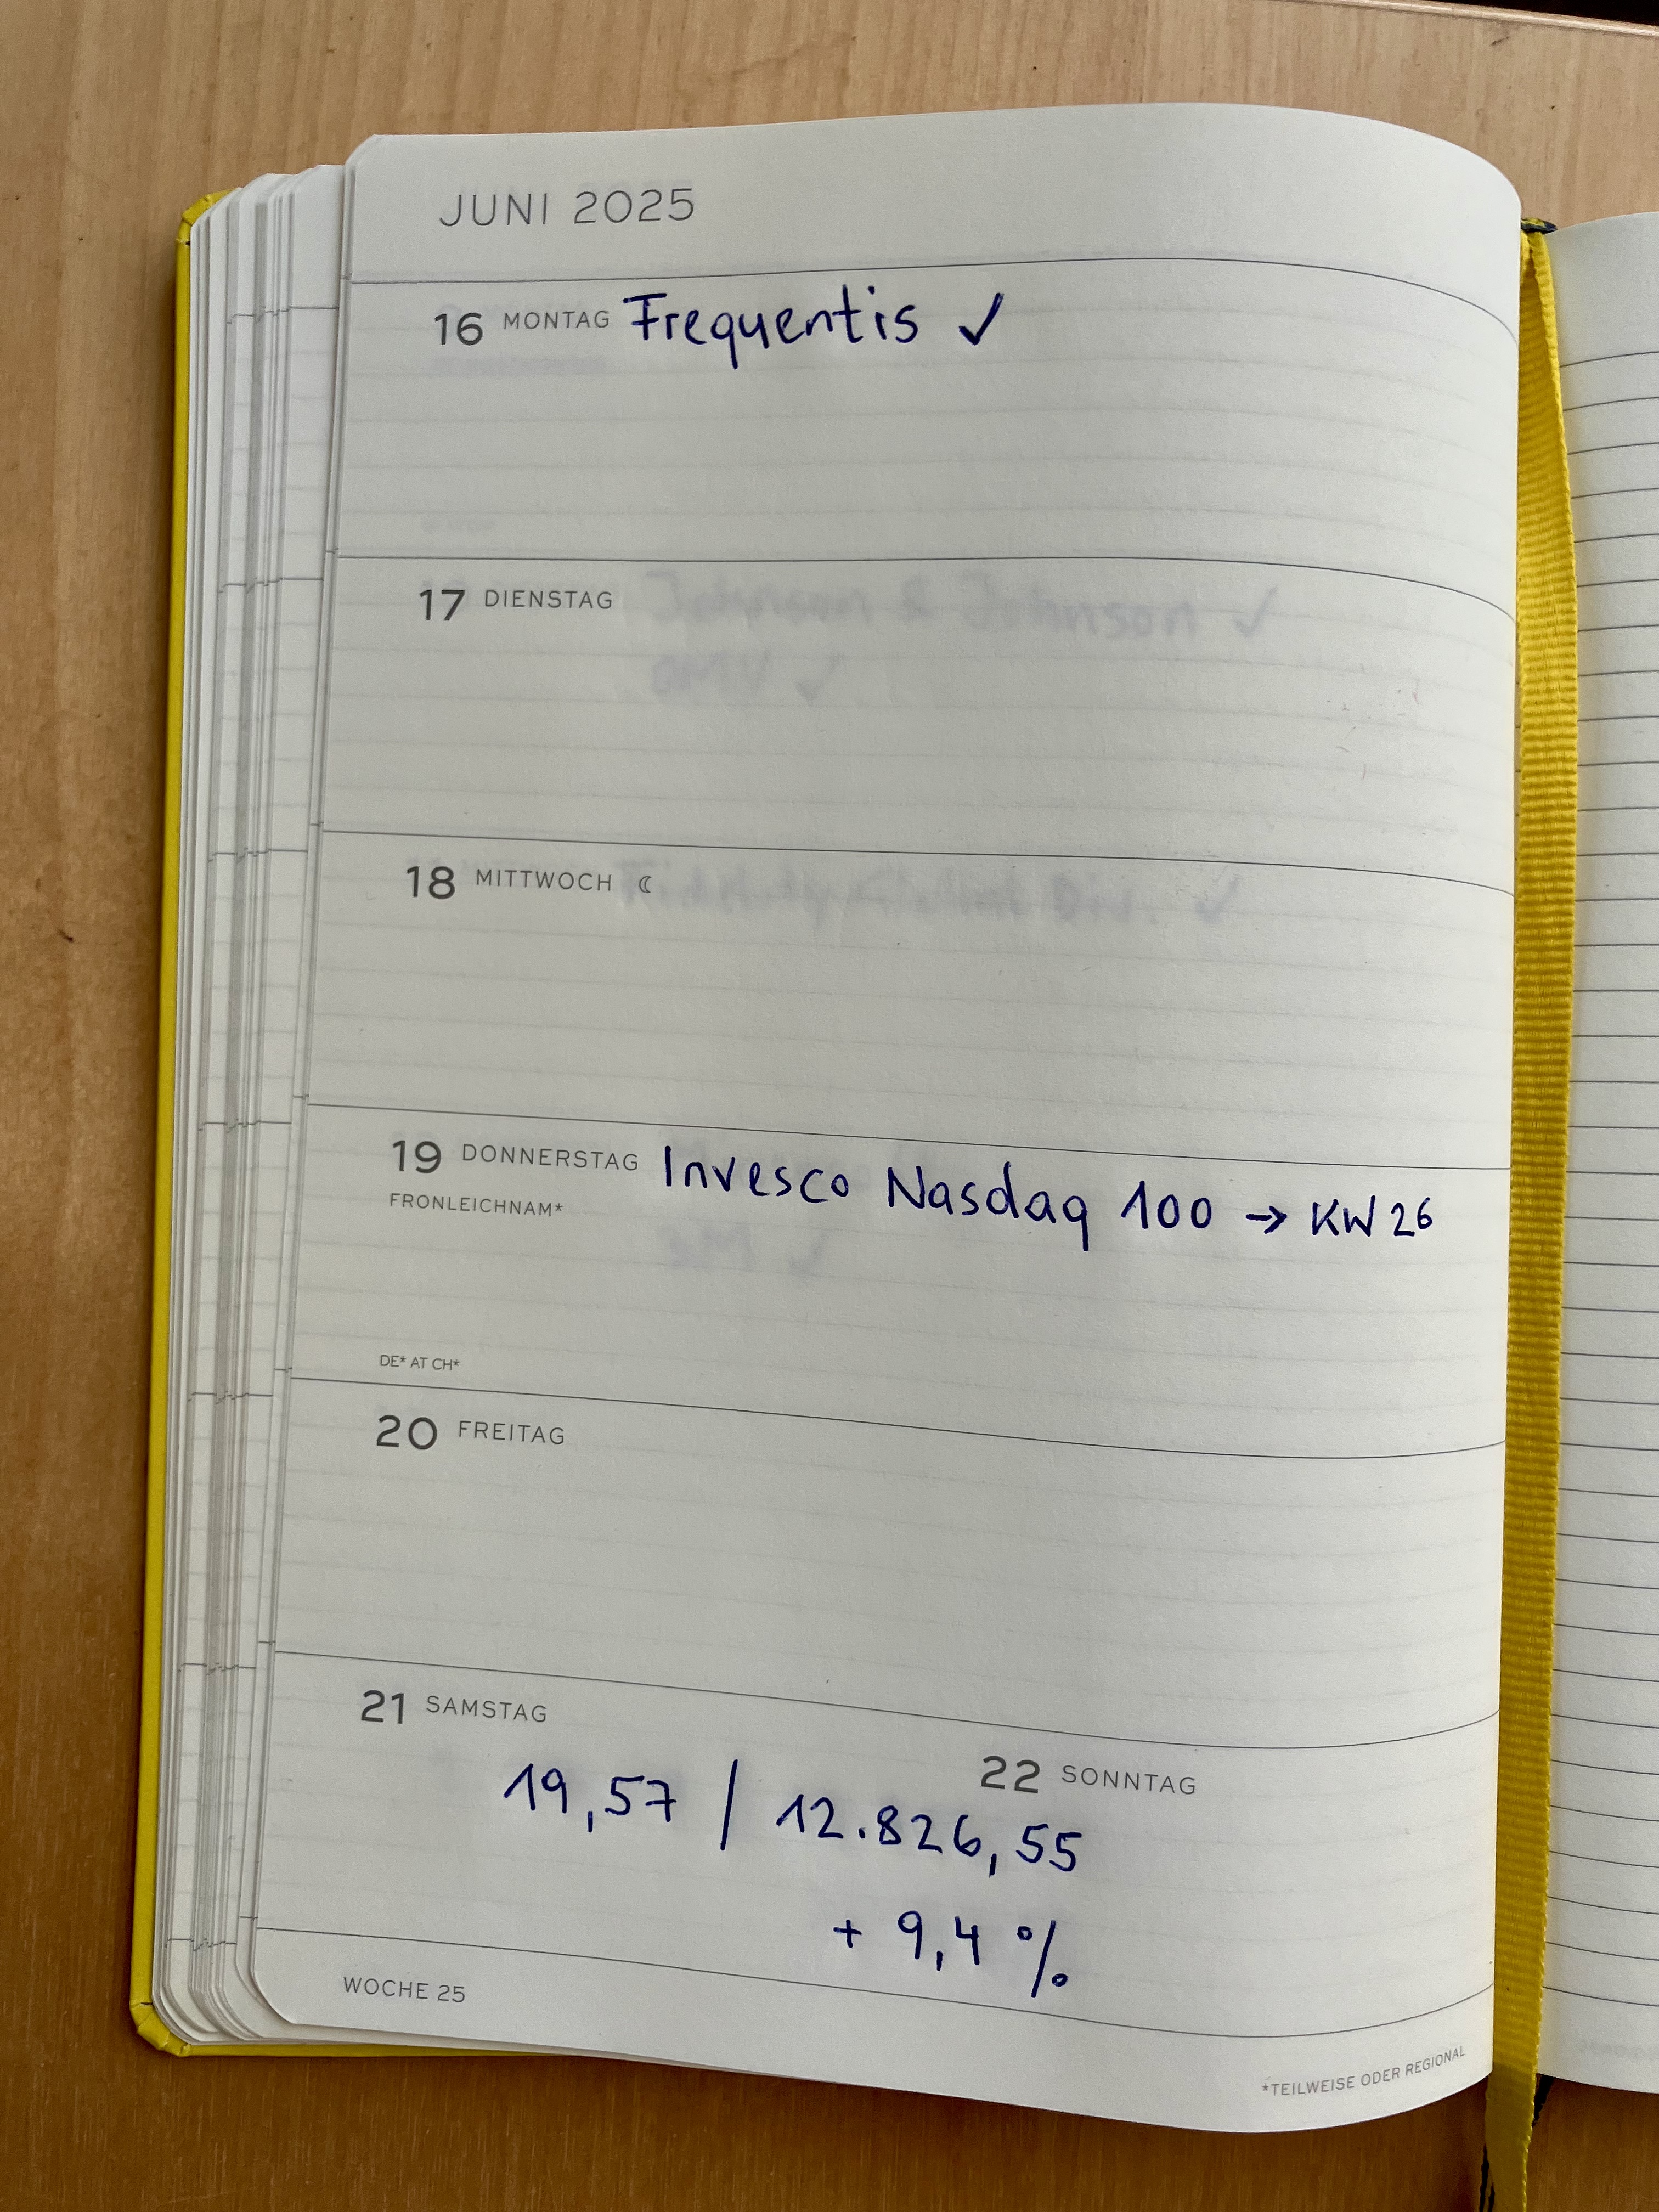 JUNI 2025
16 MONTAG Frequentis ✓
17 DIENSTAG Johnson & Johnson ✓
OMV ✓
18 MITTWOCH ☾ Fidelity Global Div. ✓
19 DONNERSTAG Invesco Nasdaq 100 → KW 26
FRONLEICHNAM*
3M ✓
DE* AT CH*
20 FREITAG
21 SAMSTAG
22 SONNTAG
19,57 / 12.826,55
+ 9,4 %
WOCHE 25
*TEILWEISE ODER REGIONAL